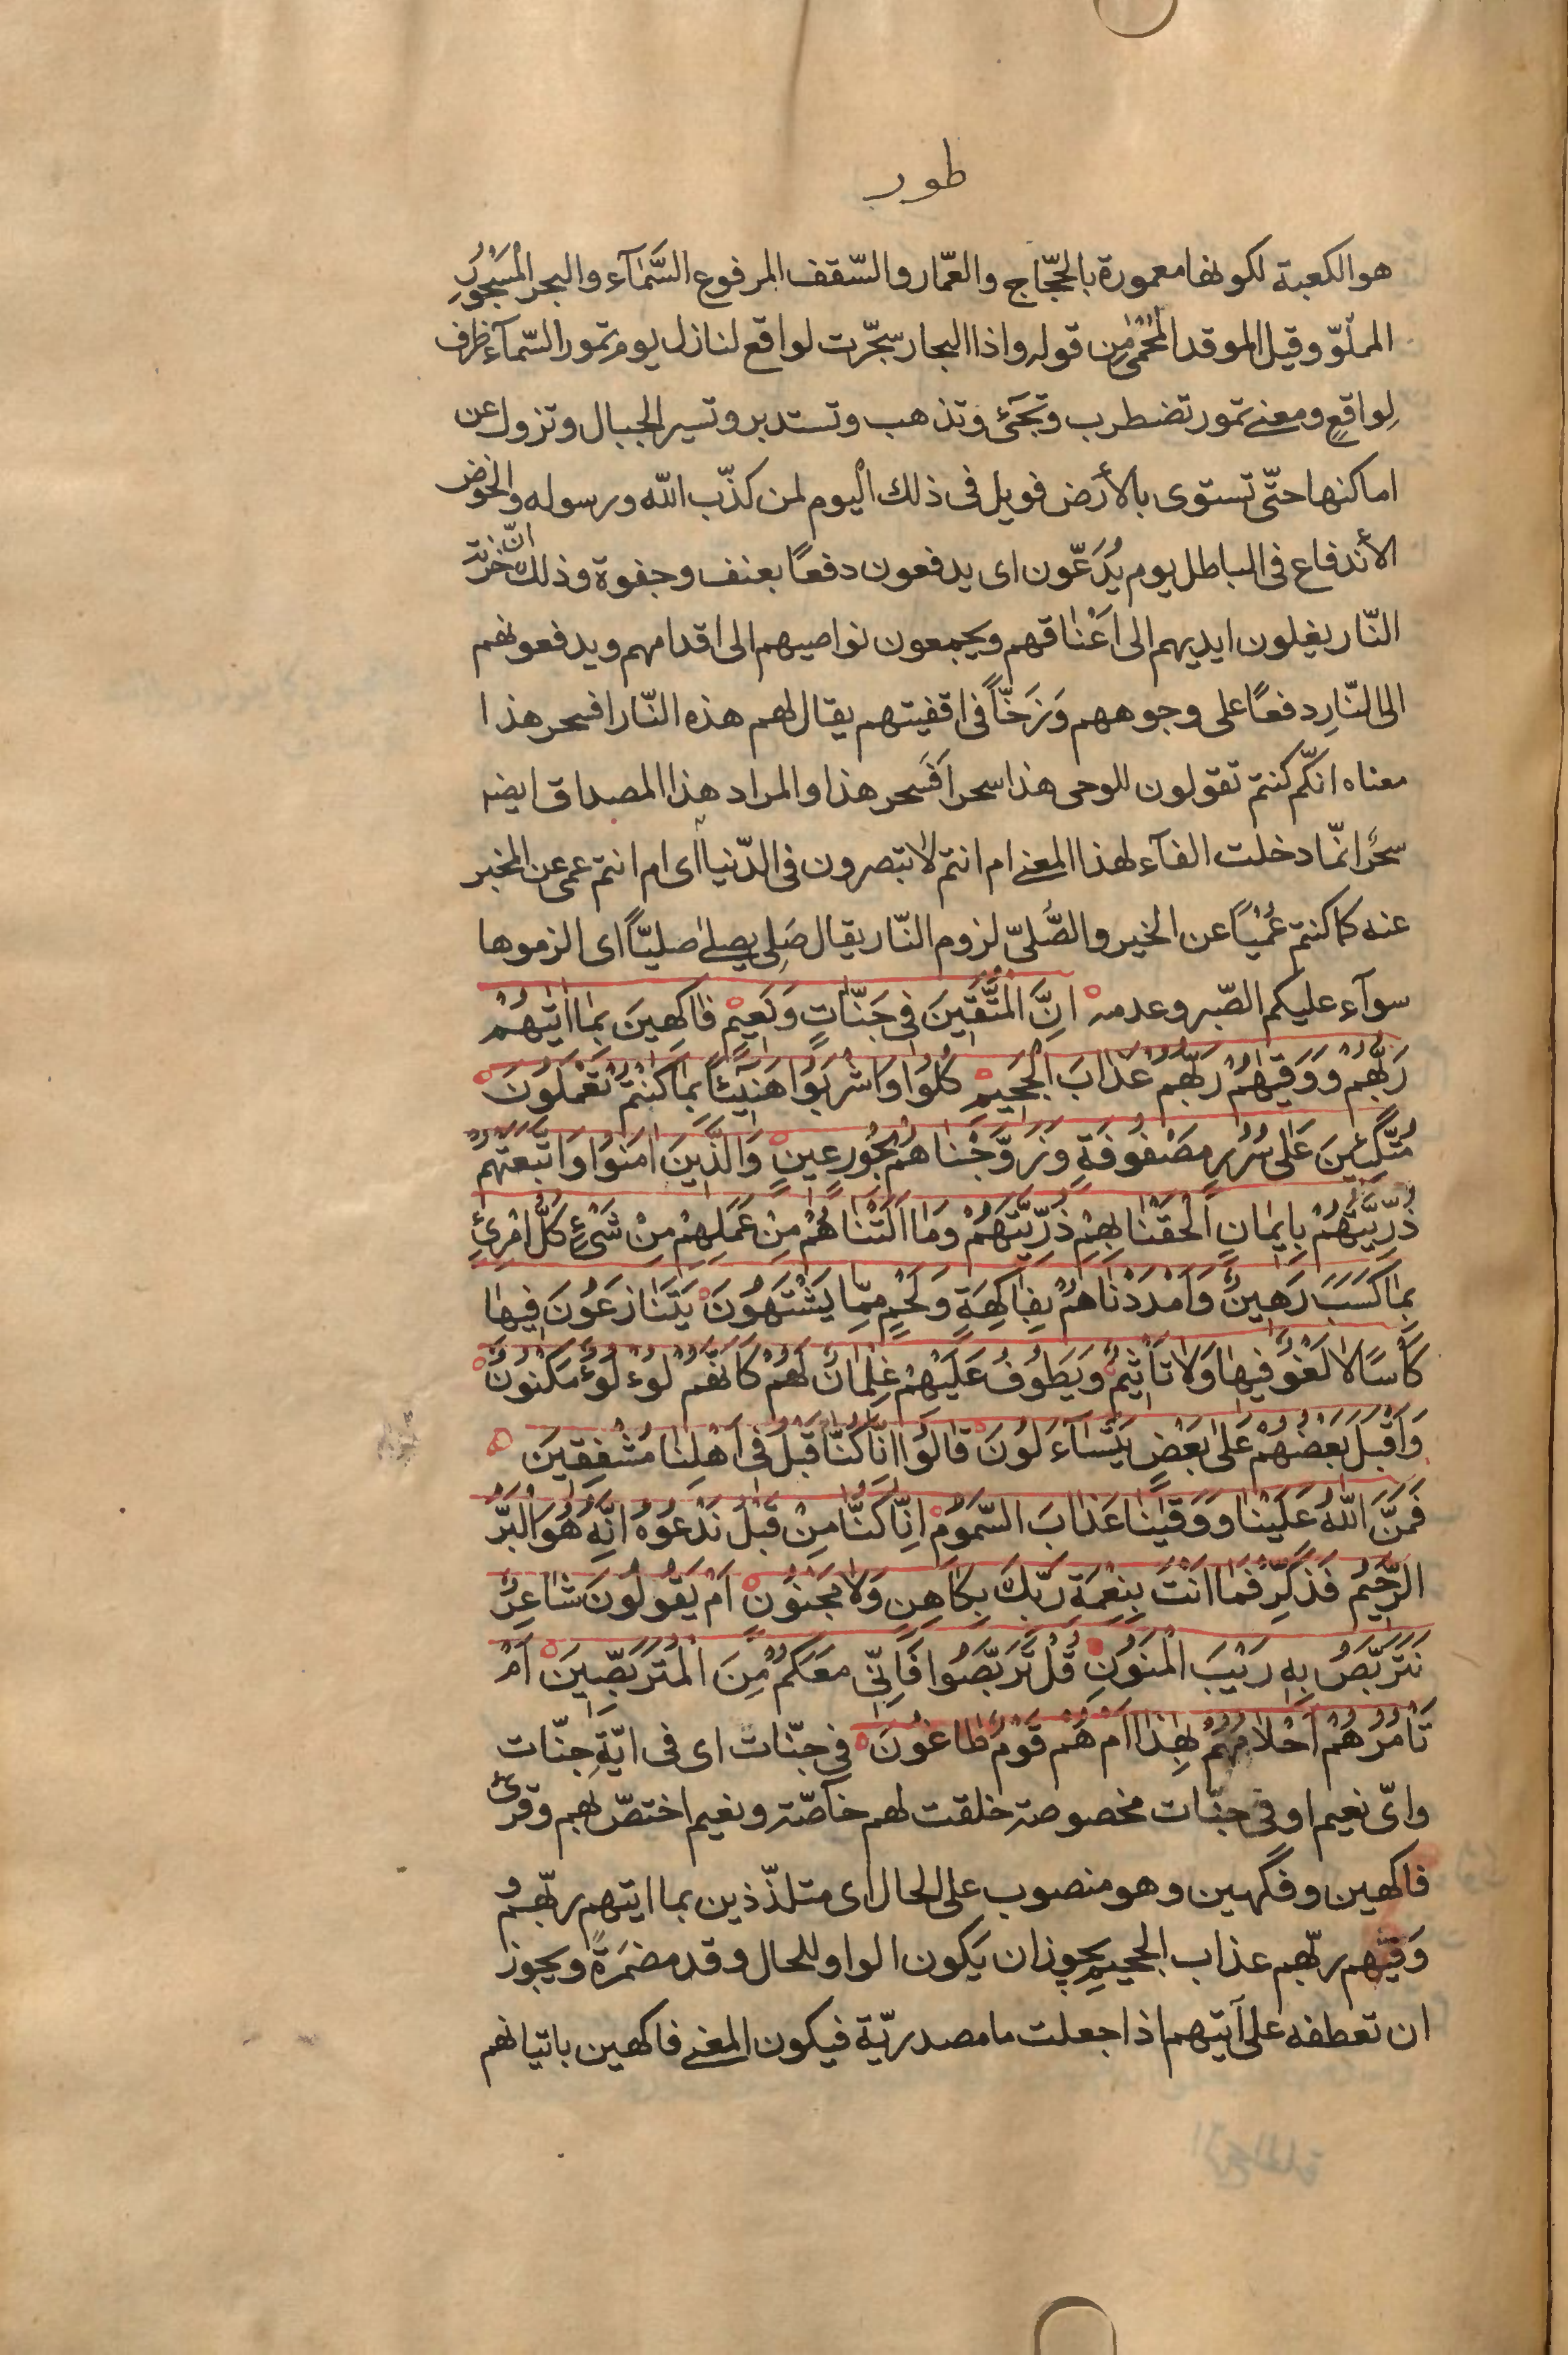 طور
هو الكعبة لكونها معمورة بالحجّاج والعمّار والسّقف المرفوع السَّمآء والبحر المَسْجُورِ
المملوّ وقيل الموقد المُحْمىٰ مِن قوله واذا البحار سجّرت لواقع لنازل يوم تمور السّمآء ظرف
لِواقعٍ ومعنى تمور تضطرب وتجَئ وتذهب وتستدير وتسير الجبال وتزول عن
اماكنها حتّى تستوى بالأرَض فويل فى ذلك اْليوم لمن كذّب الله ورسوله والخوض
الأندفاع فى الباطل يوم يُدَعّون اى يدفعون دفعًا بعنف وجفوة وذلك انّ خزنة
النّار يغلون ايديهم الى اَعْنٰاقهم ويجمعون نواصيهم الى اقدامهم ويدفعونهم
الى النّارِ دفعًا على وجوههم وَزَخّاً فى اقفيتهم يقال لهم هذه النّار افسحر هذا
معناه انكّم كنتم تقولون للوحى هذا سحر اَفَسحر هذا والمراد هذا المصداق ايضه
سحرً انّما دخلت الفآء لهذا المعنى ام انتم لا تبصرون فى الدّنيا اى ام انتم عمى عن المخبر
عنه كما كنتم عُمْيًا عن الخبر والصُّلىّ لزوم النّار يقال صَلِى يصلىٰ صليّاً اى الزموها
سوآء عليكم الصّبر وعدمه انَّ الْمُتَّقيَنَ فى جَنّاتٍ وَنَعيمْ فٰاكِهينَ بمٰا اٰتيٰهُمْ
رَبُّهُم وَوَقيٰهُمْ رَبُّهُمْ عَذٰابَ الْجَحيمِ كُلوُا وَاشْرَبوُا هَنيٓئاً بِمٰا كُنْتُمْ تَعْمَلُونَ
مُتَّكِئينَ عَلىٰ سُرُرٍ مَصْفوُفَةٍ وَزَوَّجْنٰاهُمْ بِحُورٍ عينٍ وَالَّذينَ اٰمَنوُا وَاتَّبَعَتْهُمْ
ذُرِّيَّتُهُمْ بِايمٰانٍ اَلْحَقْنٰا بِهِمْ ذُرِّيَّتَهُمْ وَمٰا اَلَتْنٰاهُمْ مِنْ عَمَلِهِمْ مِنْ شَئٍْ كُلُّ امْرِئٍ
بِمٰا كَسَبَ رَهينٌ وَاَمْدَدْنٰاهُمْ بِفٰاكِهَةٍ وَلَحْمٍ مِمّٰا يَشْتَهُونَ يَتَنٰازَعُونَ فيهٰا
كَاْسًا لاٰ لَغْوٌ فيهٰا وَلاٰ تَاْثيمٌ وَيَطُوفُ عَلَيْهِمْ غِلْمٰانٌ لَهُمْ كَاَنَّهُمْ لُؤْلُؤٌ مَكْنُونٌ
وَاَقْبَلَ بَعْضُهُمْ عَلىٰ بَعْضٍ يَتَسٰآءَلُونَ قٰالُوا اِنّٰا كُنّٰا قَبْلُ فى اَهْلِنٰا مُشْفِقينَ
فَمَنَّ اللّٰهُ عَلَيْنٰا وَوَقٰينٰا عَذٰابَ السَّموُمْ اِنّٰا كُنّٰا مِنْ قَبْلُ نَدْعُوهُ اِنَّهُ هُوَ الْبَرُّ
الرَّحيمُ فَذَكِّرْ فَمٰا اَنْتَ بِنِعْمَةِ رَبِّكَ بِكٰاهِنٍ وَلاٰ مَجْنوُنٍ اَمْ يَقُولُونَ شٰاعِرٌ
نَتَرَبَّصُ بِهِ رَيْبَ الْمَنوُنِ قُلْ تَرَبَّصُوا فَاِنّى مَعَكُمْ مِنَ الْمُتَرَبِّصينَ اَمْ
تَاْمُرُهُمْ اَحْلاٰمُهُمْ بِهٰذٰا اَمْ هُمْ قَوْمٌ طٰاغُونَ فى جنّات اى فى ايّةِ جنّات
واىّ نعيم او فى جنّات مخصوصة خلقت لهم خآصّة ونعيم اختصّ بهم وقرئ
فاكهين وفكهين وهو منصوب على الحال اى متلذّذين بما اتيهم ربّهم و
وَقيٰهم ربّهم عذاب الجحيم يجوز ان يَكون الواو للحال وقد مضمَرَةً ويجوز
ان تعطفه على آتيهم اذا جعلت ما مصدريّة فيكون المعنى فاكهين باتيانهم